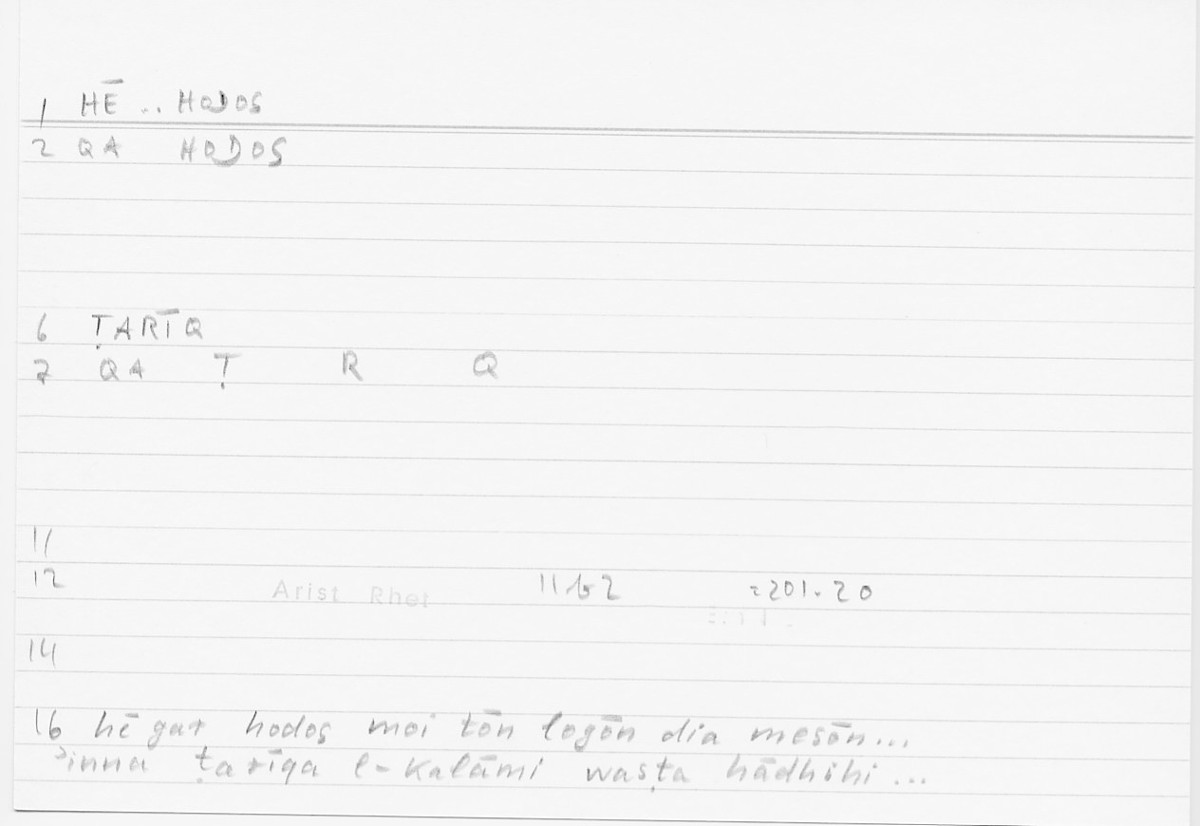 1 HĒ .. HODOS
2 QA HODOS
6 ṬARĪQ
7 QA Ṭ R Q
11
12 Arist Rhet 11b2 =201.20
14
16 hē gar hodos moi tōn logōn dia mesōn...
ʾinna ṭarīqa l-kalāmi wasṭa hādhihi ...